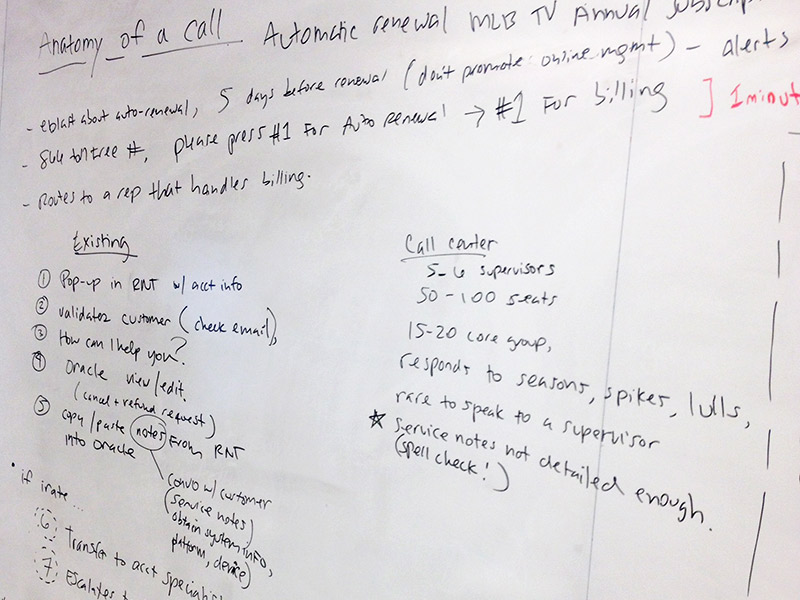 Anatomy of a call Automatic renewal MLB TV Annual subscrip
- eblast about auto-renewal, 5 days before renewal (don't promote online mgmt) - alerts
- 866 toll free #, please press #1 for Auto renewal → #1 for billing ] 1 minut
- Routes to a rep that handles billing.
Existing
① Pop-up in RNT w/ acct info
② validates customer (check email),
③ How can I help you?
④ Oracle view/edit.
(cancel + refund request)
⑤ copy/paste notes from RNT
into Oracle
convo w/ customer
(service notes)
obtain system info,
platform, device)
• if irate ...
6 Transfer to acct specialis
7 Escalates t
Call center
5-6 supervisors
50-100 seats
15-20 core group,
responds to seasons, spikes, lulls,
rare to speak to a supervisor
☆ service notes not detailed enough.
(spell check!)